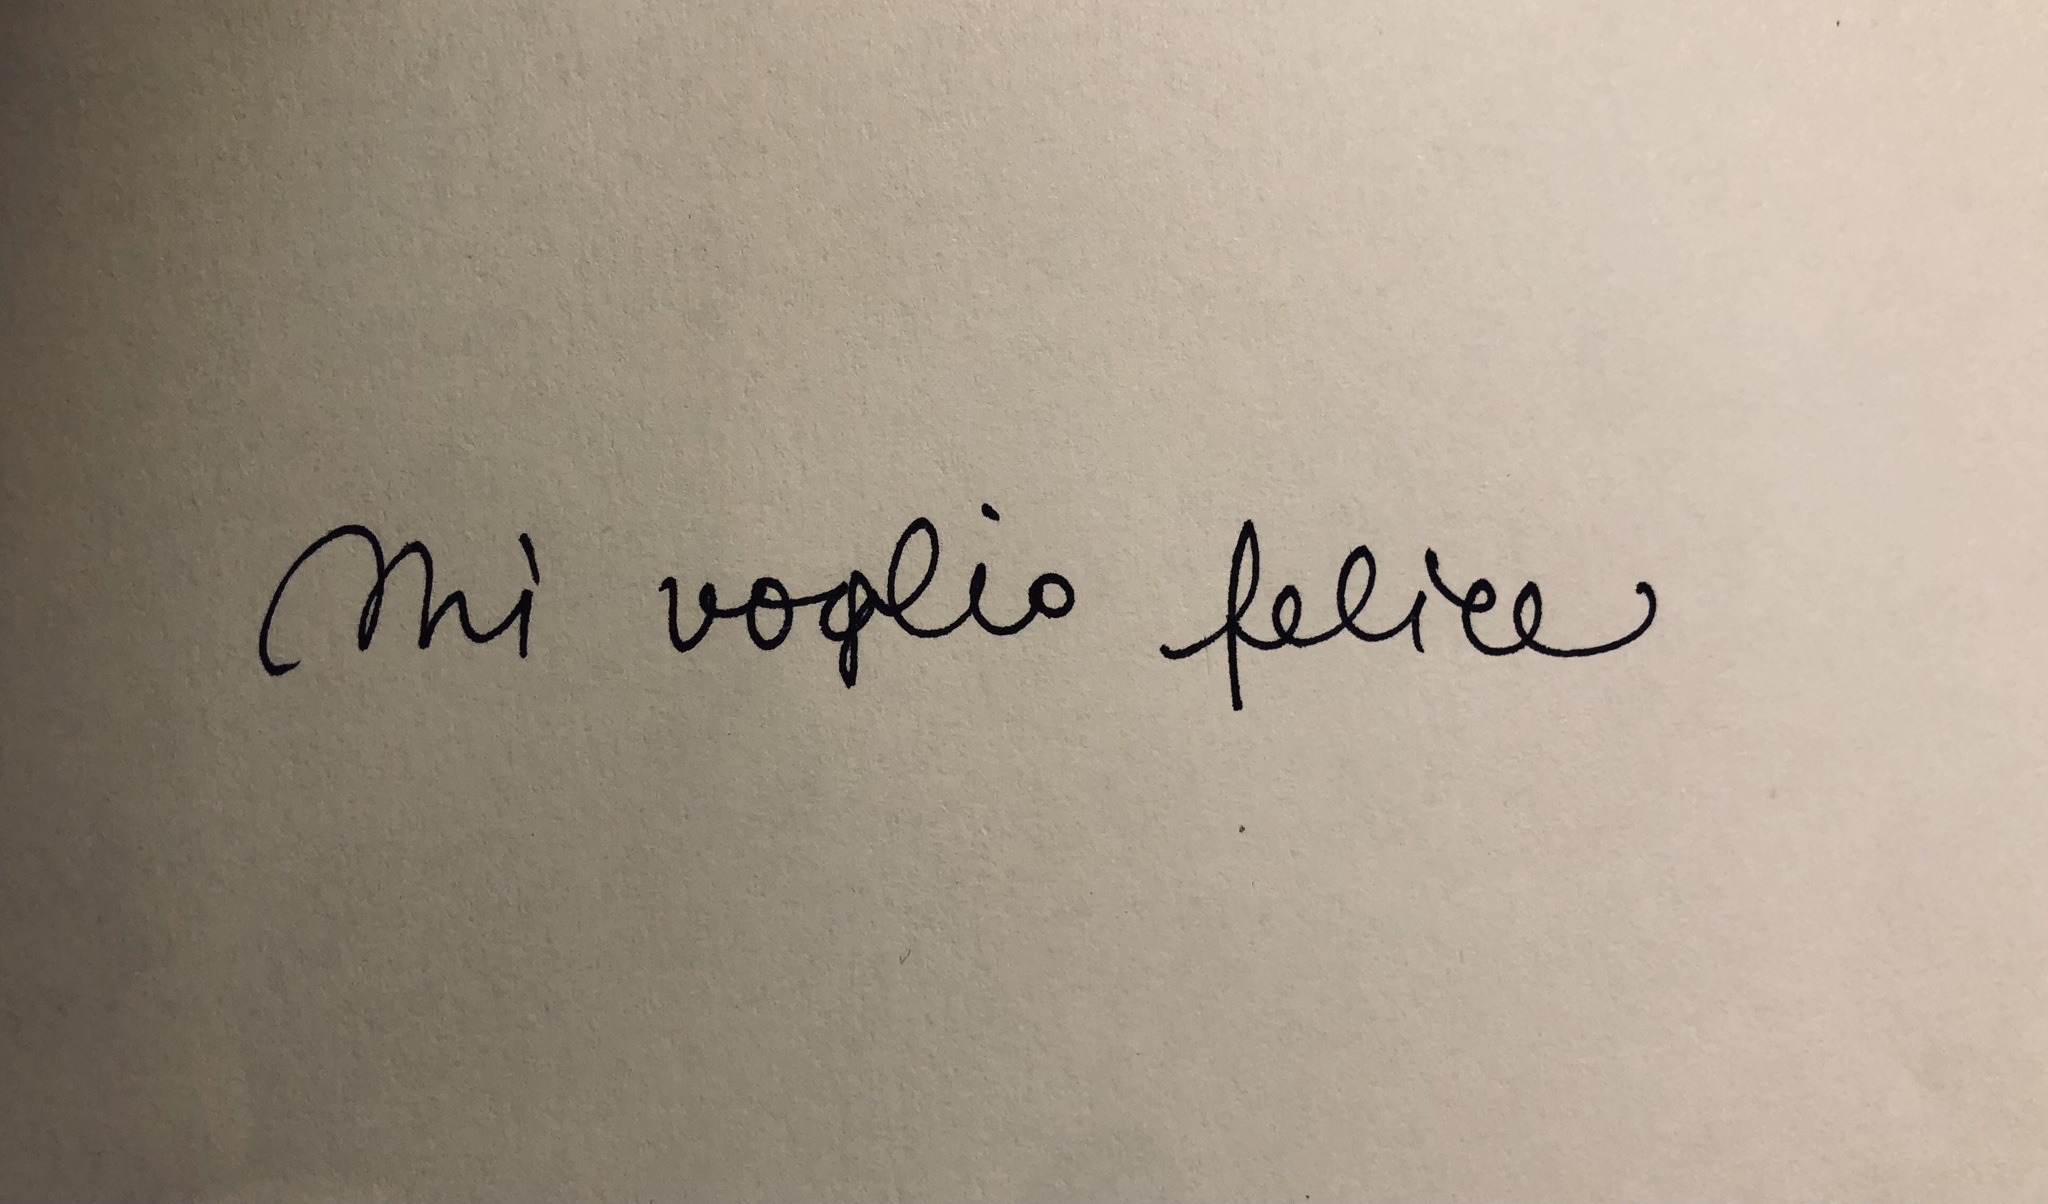 Mi voglio felice